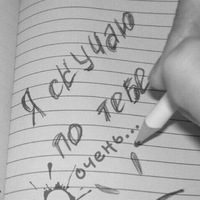 Я скучаю
по тебе
очень...